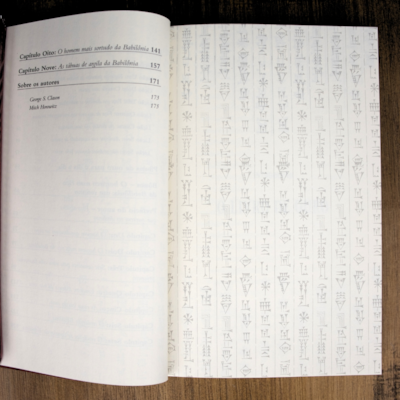 Capítulo Oito: O homem mais sortudo da Babilônia 141
Capítulo Nove: As tábuas de argila da Babilônia 157
Sobre os autores 171
George S. Clason 173
Mitch Horowitz 175